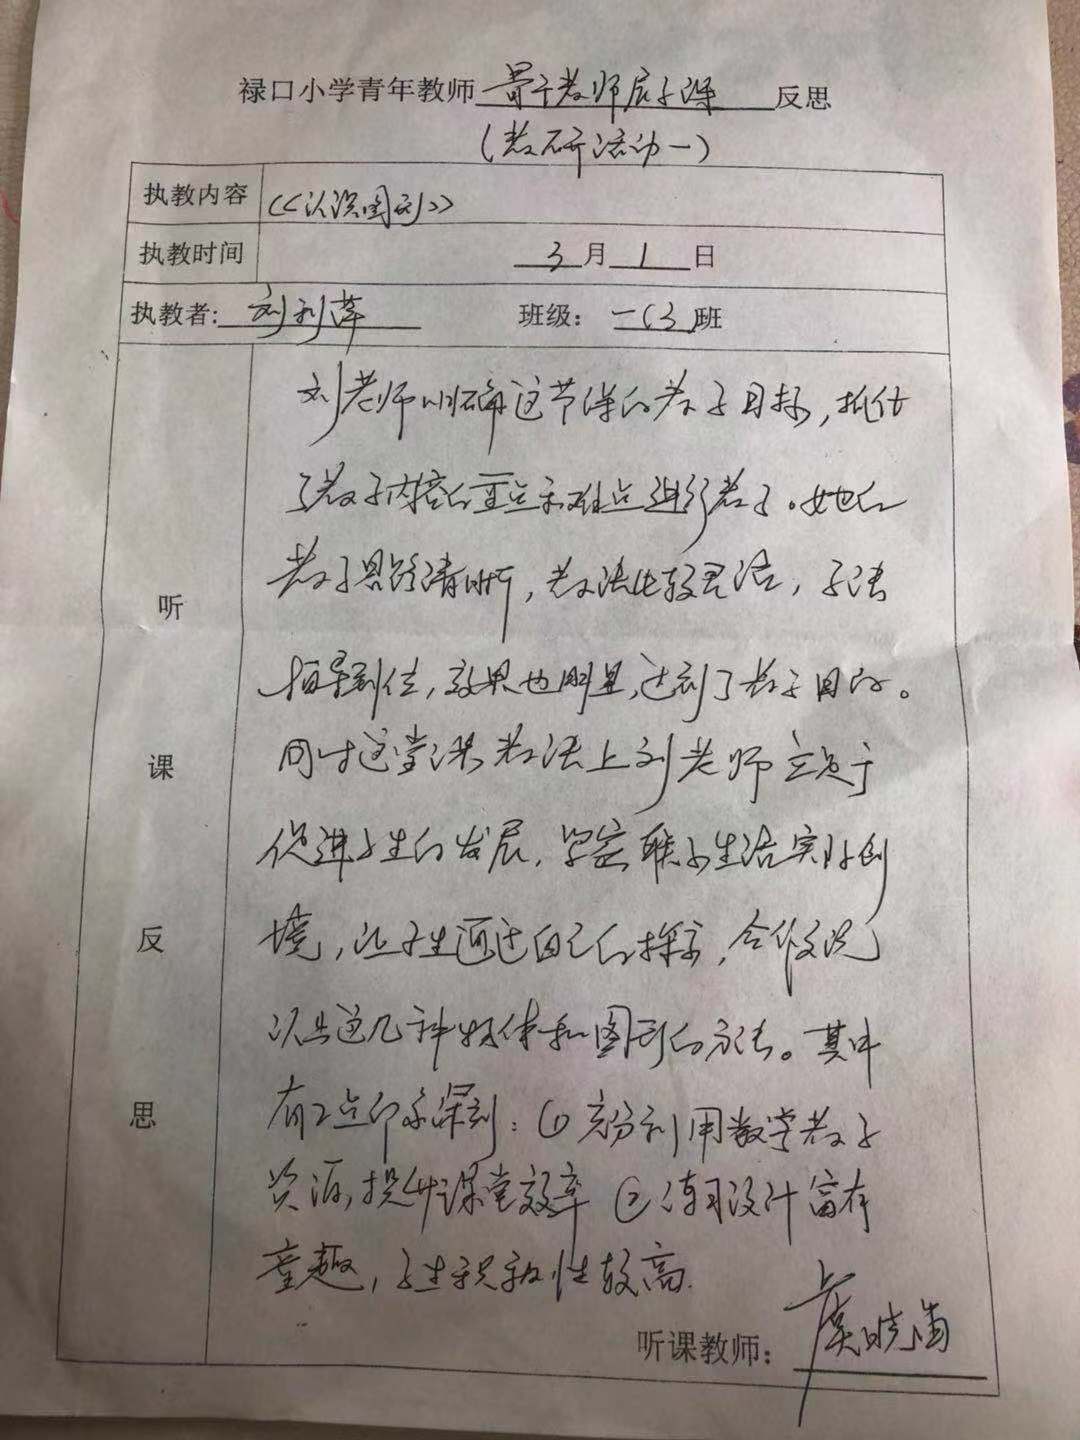 禄口小学青年教师骨干教师展示课反思
(教研活动一)
执教内容 《认识图形》
执教时间 3月1日
执教者: 刘利萍 班级: 一(3)班
听课反思
刘老师明确这节课的教学目标，抓住
了教学内容的重点和难点进行教学。她的
教学思路清晰，教法比较灵活，学法
指导到位，效果也明显，达到了教学目的。
同时这堂课教法上刘老师立足于
促进学生的发展，紧密联系生活实际创
境，让学生通过自己的探索，合作交流
认出这几种物体和图形的方法。其中
有2点印象深刻：①充分利用数学教学
资源，提升课堂效率 ②练习设计富有
童趣，学生积极性较高.
听课教师: